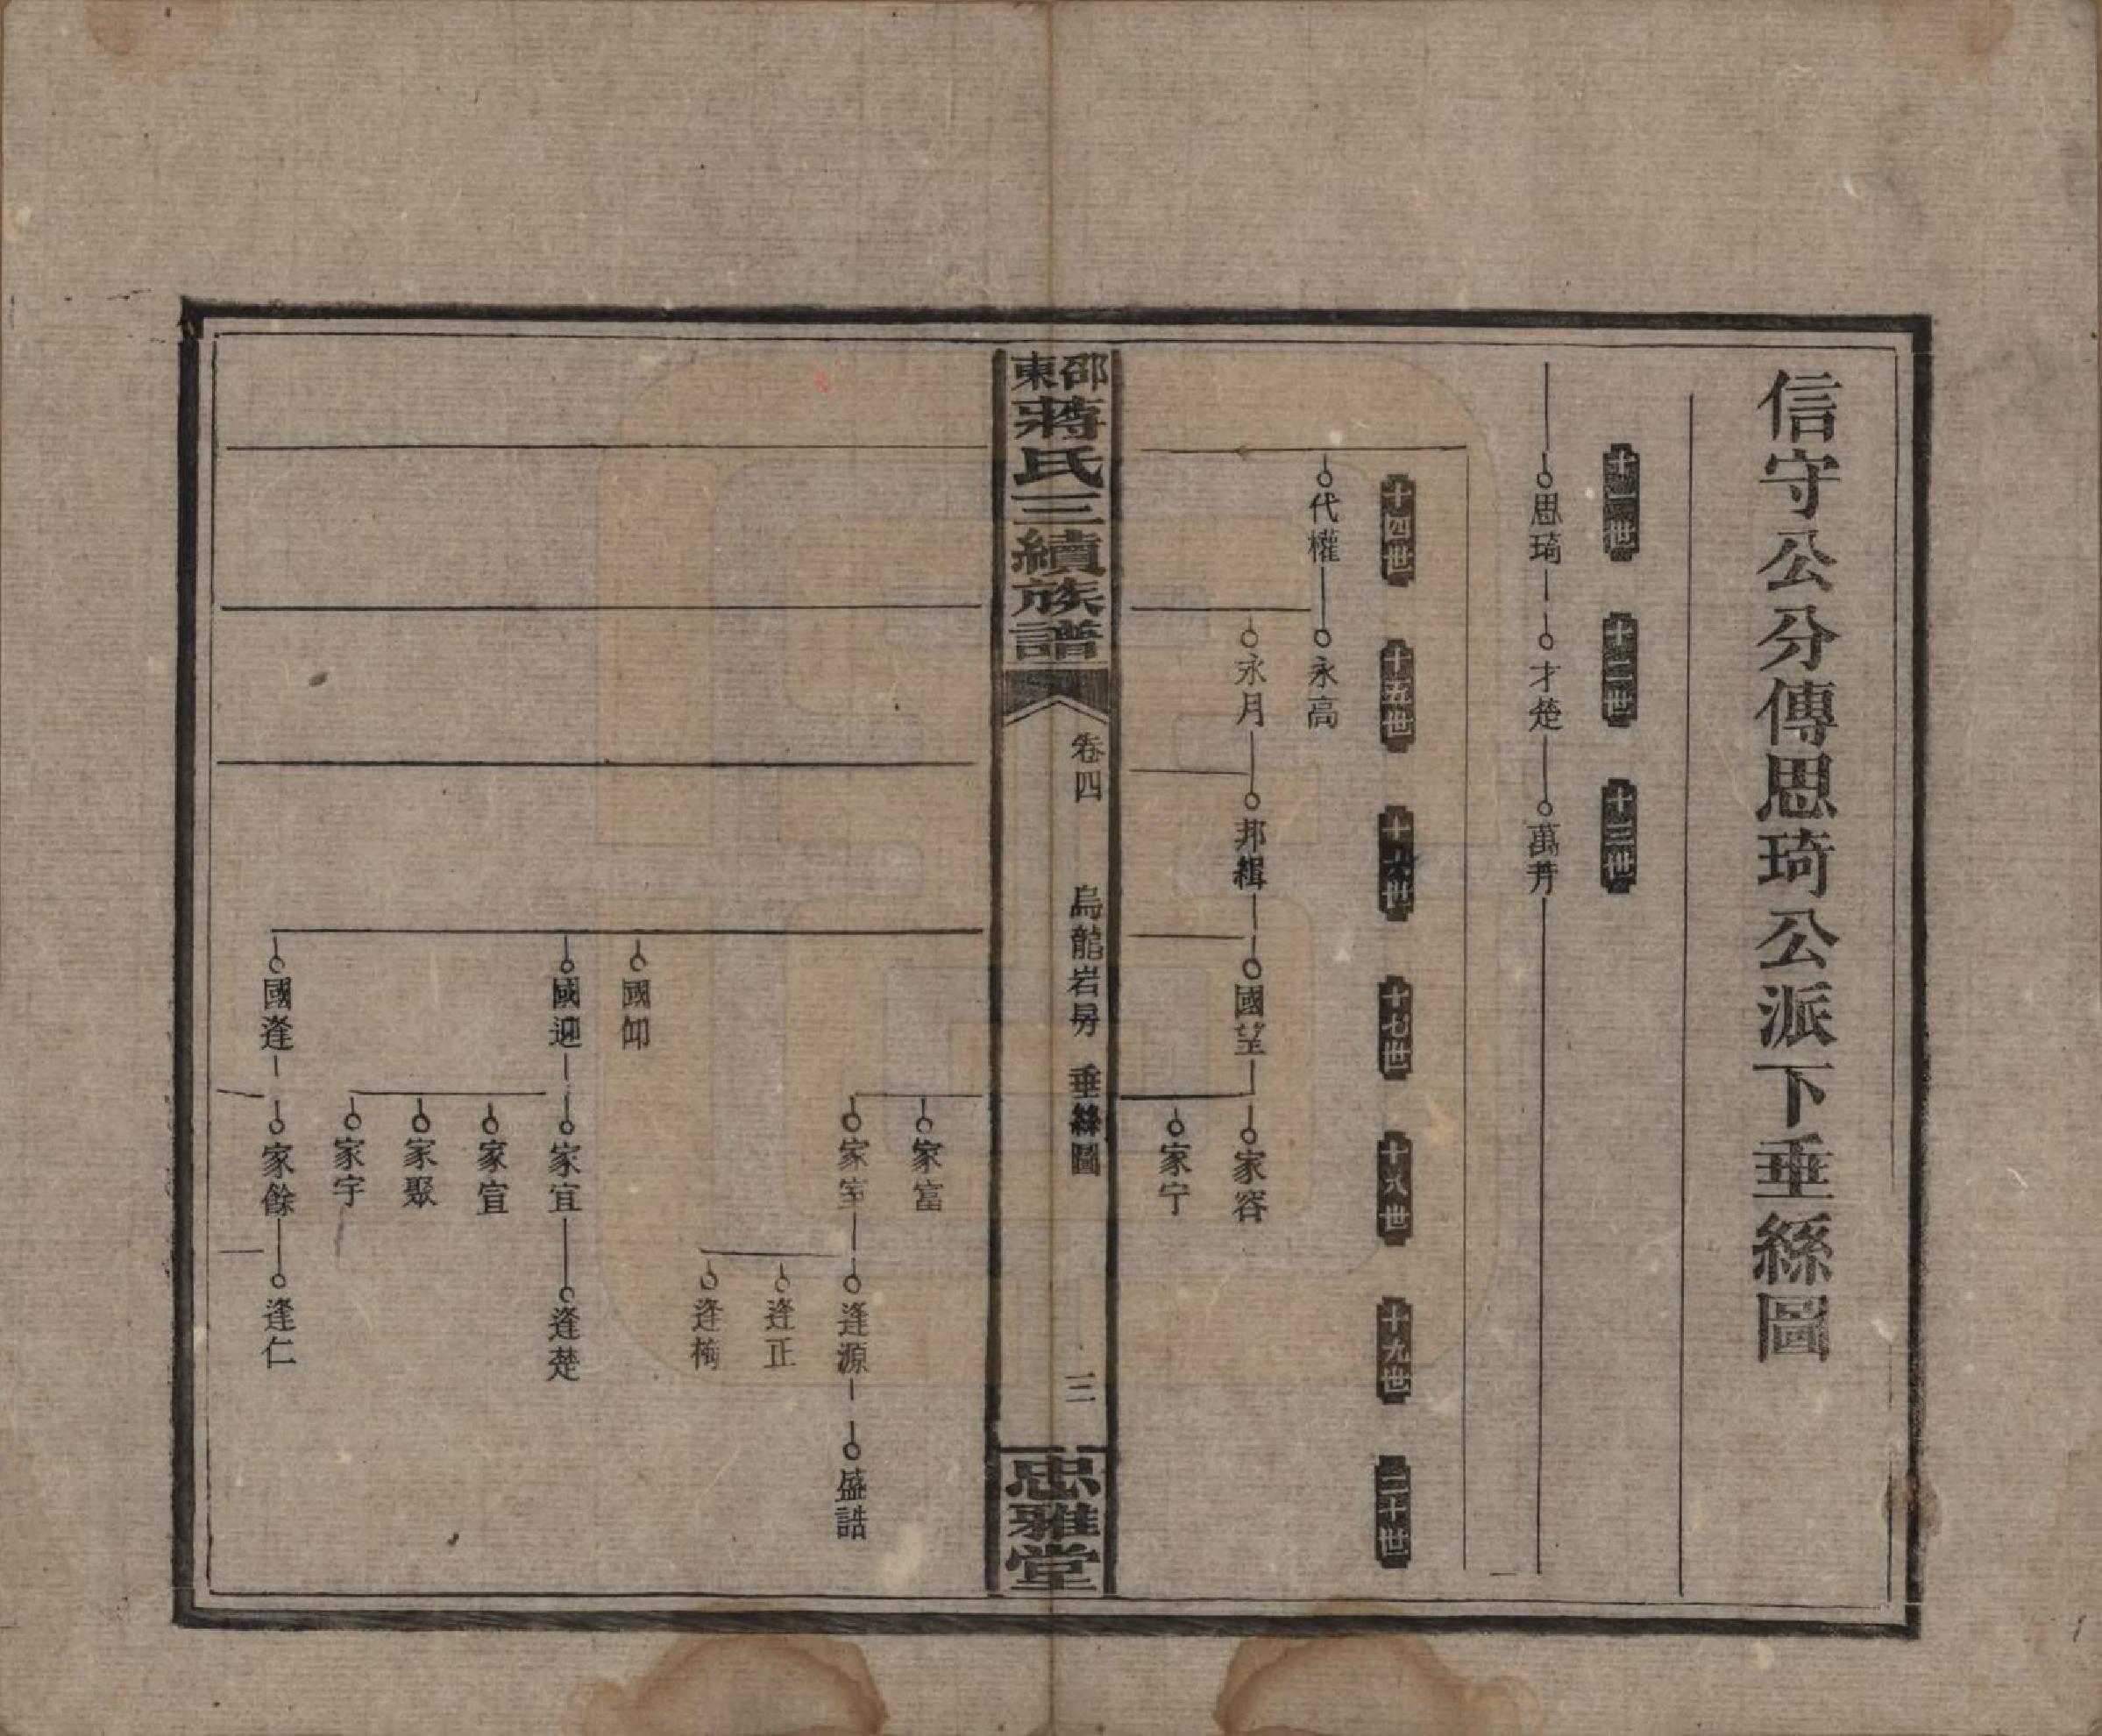 信守公分傳思琦公派下垂絲圖
十一世
十二世
十三世
思琦
才楚
萬玬
十四世
十五世
十六世
十七世
十八世
十九世
二十世
代權
永高
永月
邦緝
國望
家容
家宁
邵東蔣氏三續族譜
卷四
烏龍岩房
垂絲圖
三
忠雅堂
家富
家室
逢源
盛誥
逢正
逢梅
國仰
國迎
家宜
逢楚
家宣
家聚
家宇
國逢
家餘
逢仁